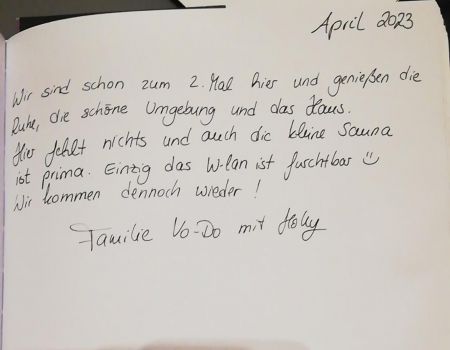 April 2023
Wir sind schon zum 2. Mal hier und genießen die
Ruhe, die schöne Umgebung und das Haus.
Hier fehlt nichts und auch die kleine Sauna
ist prima. Einzig das W-lan ist furchtbar ☺
Wir kommen dennoch wieder!
Familie Vo-Do mit Holly